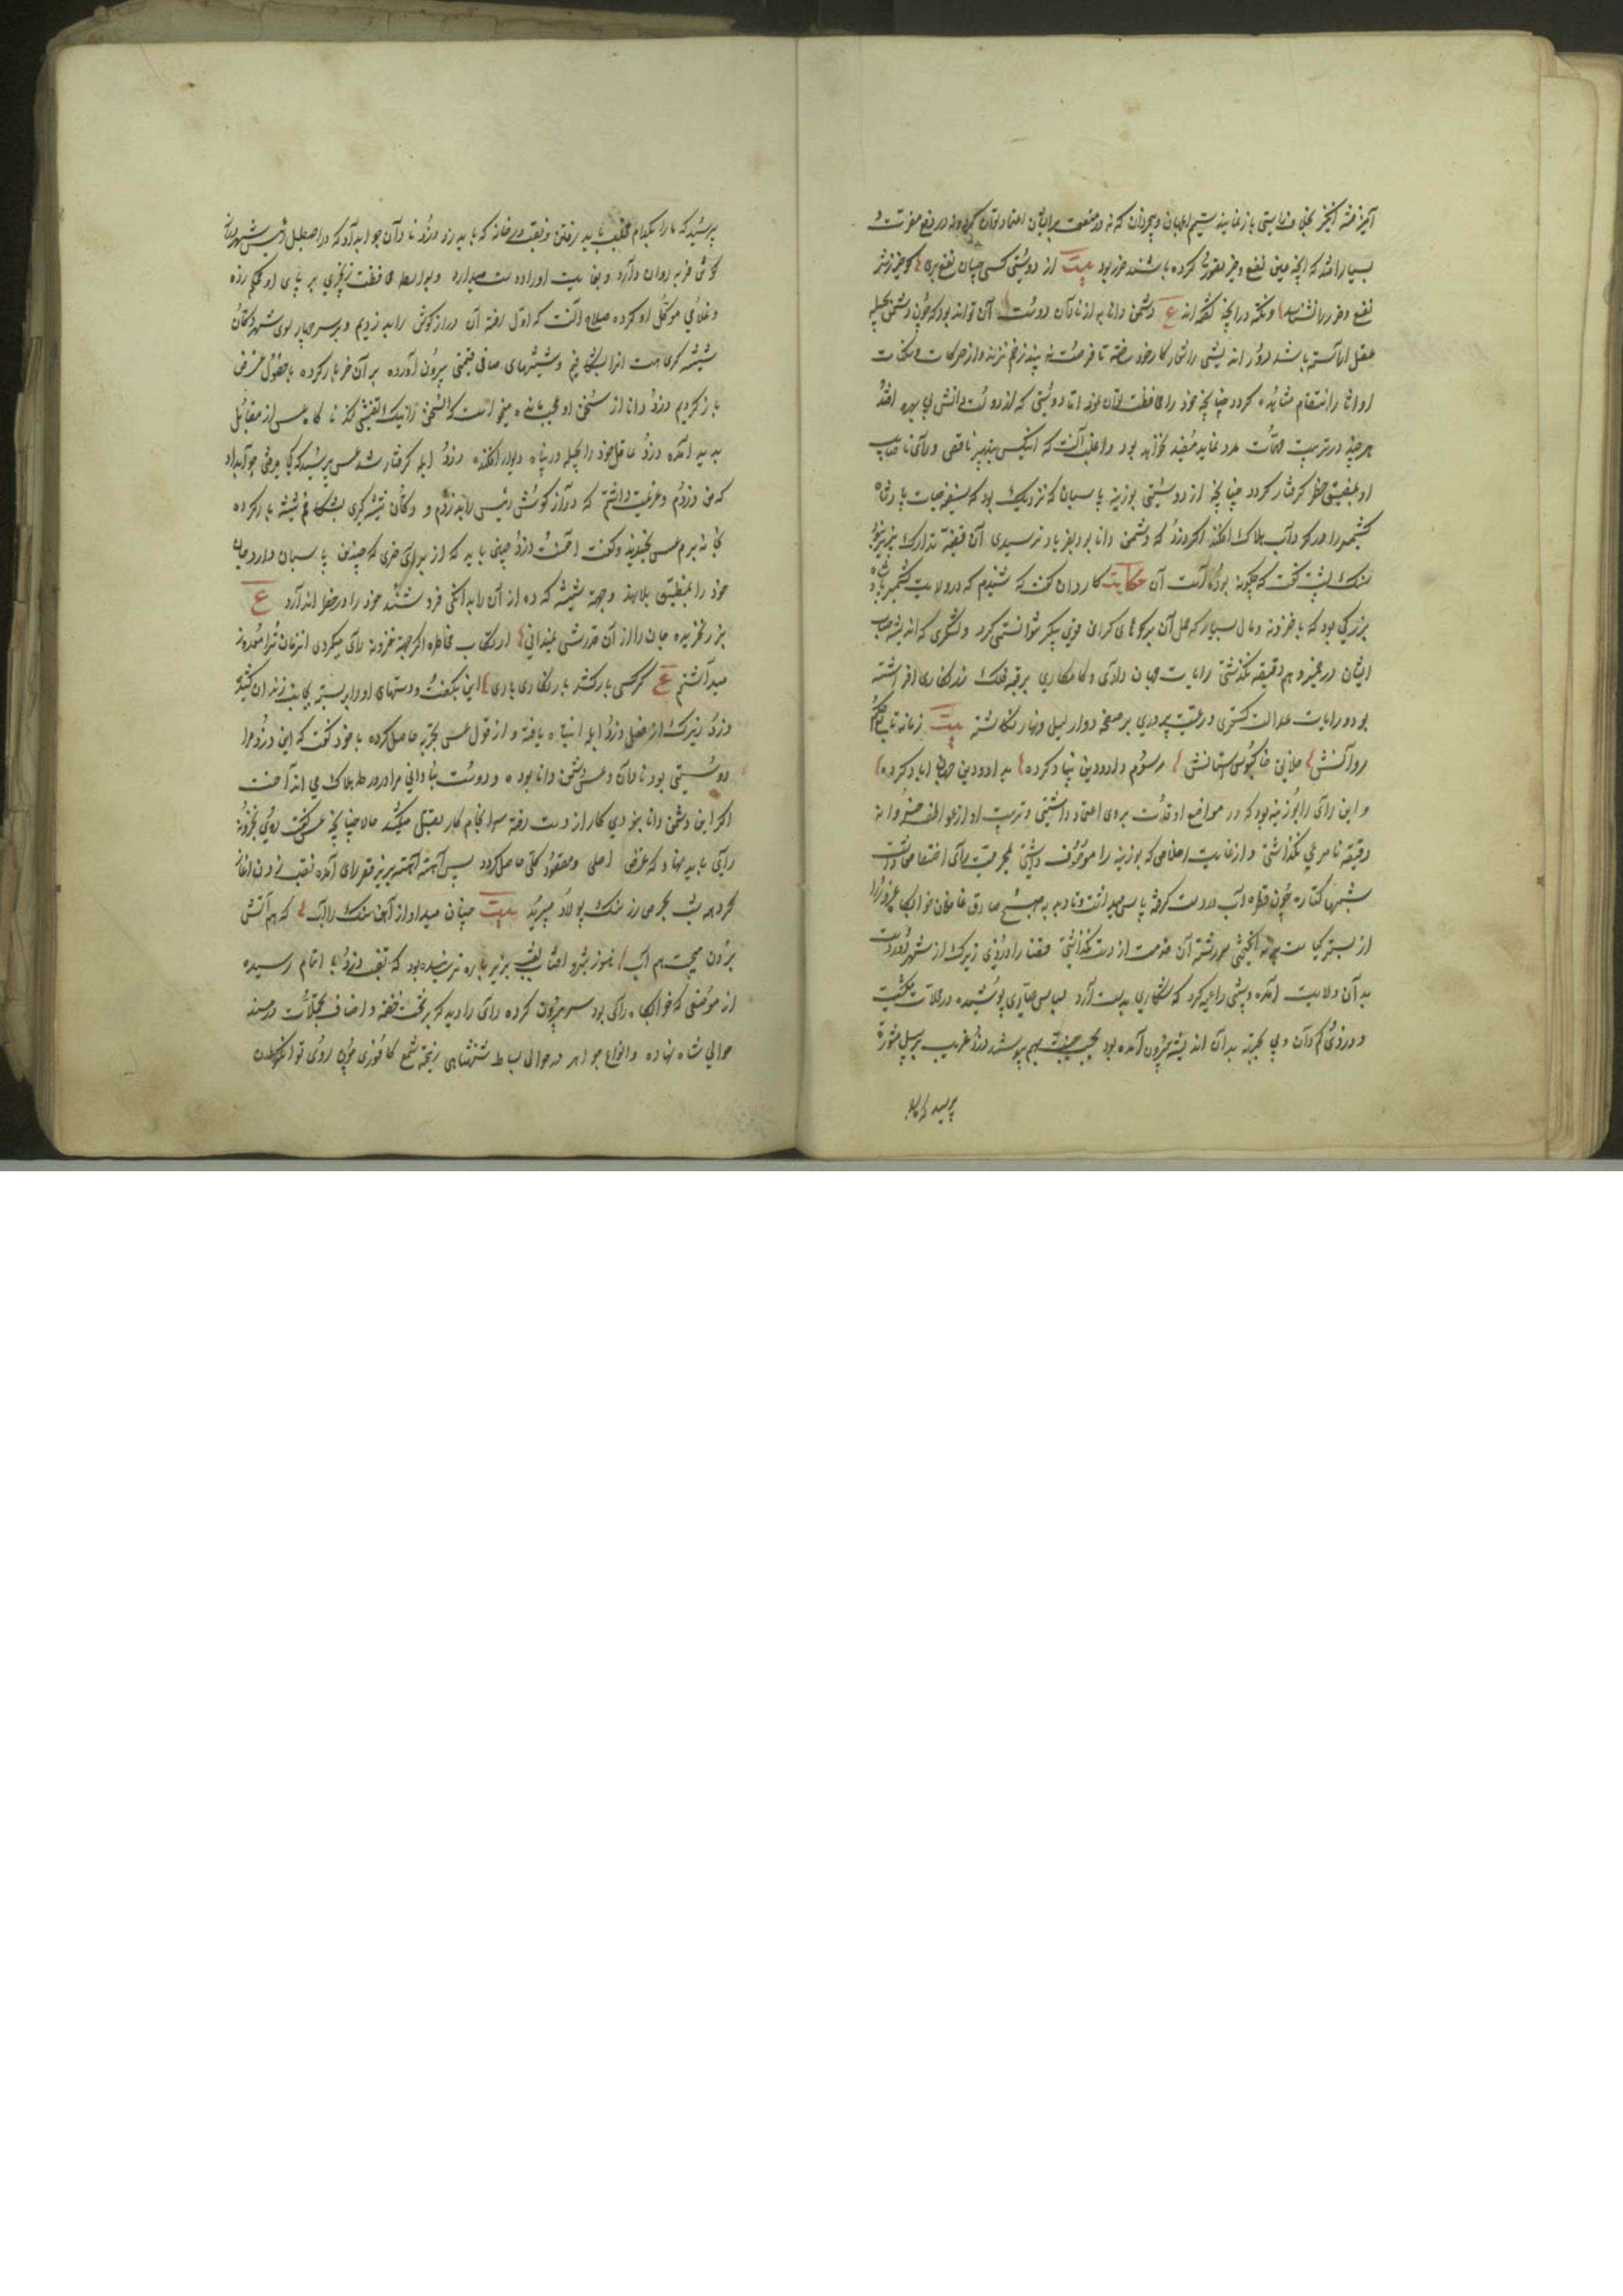 بسیار افتد که آنچه عین نفع و خیر تصور کرده باشند ضرر بود بیت از دوستی کسی چسان نفع بری کو خیر ز شر
نفع و ضرر نشناسد و نکته در آنچه گفته اند ع دشمن دانا به از نادان دوست آن تواند بود که چون دشمن بحیله
عقل آراسته باشد دور اندیشی را شعار کار خود ساخته تا فرصت نه بیند زخم نزند و از حرکات و سکنات
او اثار انتقام مشاهده کردد چنانچه خود را محافظت توان نمود اما دوستی که از دولت دانش بی بهره افتد
هر چند در ترتیب مهمات مدد نماید مفید نخواهد بود و اغلب آنست که آنکس بتدبیر ناقص و رای ناصایب
او بمضیق خطر گرفتار کردد چنانچه از دوستی بوزینه پاسبان که نزدیک بود که سفینه حیات پادشاه
کشمیر را در گرداب هلاک افکند اگر دزد که دشمن دانا بود بفریاد نرسیدی آن قضیه تدارک پذیر نبودی
سنک پشت گفت که چگونه بوده است آن حکایت کاردان گفت که شنیدم که در ولایت کشمیر پادشاه
بزرگی بود که با خزونه و مال بسیار که حمل آن بر کوههای گران قوی پیکر نتوانستی کرد و لشگری که اندیشه حساب
ایشان در ضمیر وهم دقیقه نگذشتی رایات جهانداری و کامکاری بر قبه فلک زنکاری افراشته
بود و رایات عدالت گستری و رعیت پروری بر صفحه دوار لیل و نهار نگاشته بیت زمانه تابع حکم
روانش سلاطین خاک بوس استانش رسوم داد و دین بنیاد کرده بداد و دین جهان آباد کرده
و این رای را بوزینه بود که در مواضع اوقات بروی اعتماد داشتی و تربیت او از عواطف خسروانه
دقیقه نامرعی نگذاشتی و از غایت اخلاصی که بوزینه را موصوف داشتی بمحرمیت رای اختصاص داشت
شبها کتاره چون قطره آب در دست گرفته پاس میداشت و تا دمیدن صبح صادق
از بستر سر رشته آن خدمت از دست نگذاشتی قضا را دزدی زیرک از شهر دور دست
بدان ولایت آمده و شبی داعیه کرد که شکاری بدست آرد لباس عیاری پوشیده در محلات میکشت
و دزدی نادان و بی تجربه بدان اندیشه بیرون آمده بود بحسب جنسیت بهم پیوستند دزد غریب بر سبیل مشورة
پرسید که ما را
پرسید که ما را بکدام محلت باید رفتن و نقب در خانه که باید زد دزد نادان جواب داد که در اصطبل رئیس شهر دراز
گوشی فربه روان دارد و بغایت او را دوست میدارد و بواسطه محافظت زنجیری بر پای او محکم زده
و غلامی موکل او کرده صلاح آنست که اول رفته آن دراز گوش را بدزدیم و بر سر چهار سوی شهر دکان
شیشه گری هست آنرا بشکافیم و شیشهای صافی قیمتی بیرون آورده بر آن خر بار کرده با حصول غرض
باز گردیم دزد دانا از سخن او عجب مانده میخواست که سخن را نیک تفتیش کند ناگاه عسس از مقابل
پدید آمده دزد عاقل خود را بحیله در پناه دیوار افکنده دزد ابله گرفتار شد عسس پرسید که کجا میرفتی جواب داد
که من دزدم و عزیمت داشتم که دراز گوش رئیس را بدزدم و دکان شیشه گری بشکافم شیشه بار کرده
بخانه برم عسس بخندید و گفت احسنت دزد چنین باید که از برای خری که چندین پاسبان دارد جان
خود را بمضیق بلا نهد و جهة شیشه که ده از آن را بدانگی فروشند خود را در خطر اندازد ع
بزر نخریده جان را از آن قدرش نمیدانی ارتکاب مخاطره اگر جهة خزونه رای میکردی از زمان ترا معذور
میداشتم ع گر کسی بار کشد بار نگاری باری این بگفت و دستهای او را بر بسته بجانب زندان کشید
دزد زیرک از فضل دزد ابله انتباه یافته و از قول عسس تجربه حاصل کرده با خود گفت که این دزد مرا
دوستی بود نادان و عسس دشمن دانا بود و دوست بنادانی مرا در ورطه هلاک می انداخت
اگر این دشمن دانا نبودی کار از دست رفته سرانجام کار بقتل میکشد حالا چنانچه عسس گفت روی بخزونه
رای باید نهاد که غرض اصلی و مقصود کلی حاصل گردد پس آهسته آهسته بزیر قصر رای آمده نقب زدن آغاز
کرد همه شب بحرص زر سنک پولاد میبرید بیت چنان میداد از آهن سنک را آب که هم آتش
برون میجست هم آب هنوز شبرو افتاب نقب بزیر باره نرسیده بود که نقب دزد با تمام رسیده
از موضعی که خوابگاه رای بود سر بیرون کرده رای را دید که بر تخت خفته و اصناف تجملات در مسند
حوالی شاه نهاده و انواع جواهر در حوالی بساط شنشاهی ریخته شمع کافوری چون روی توانگران